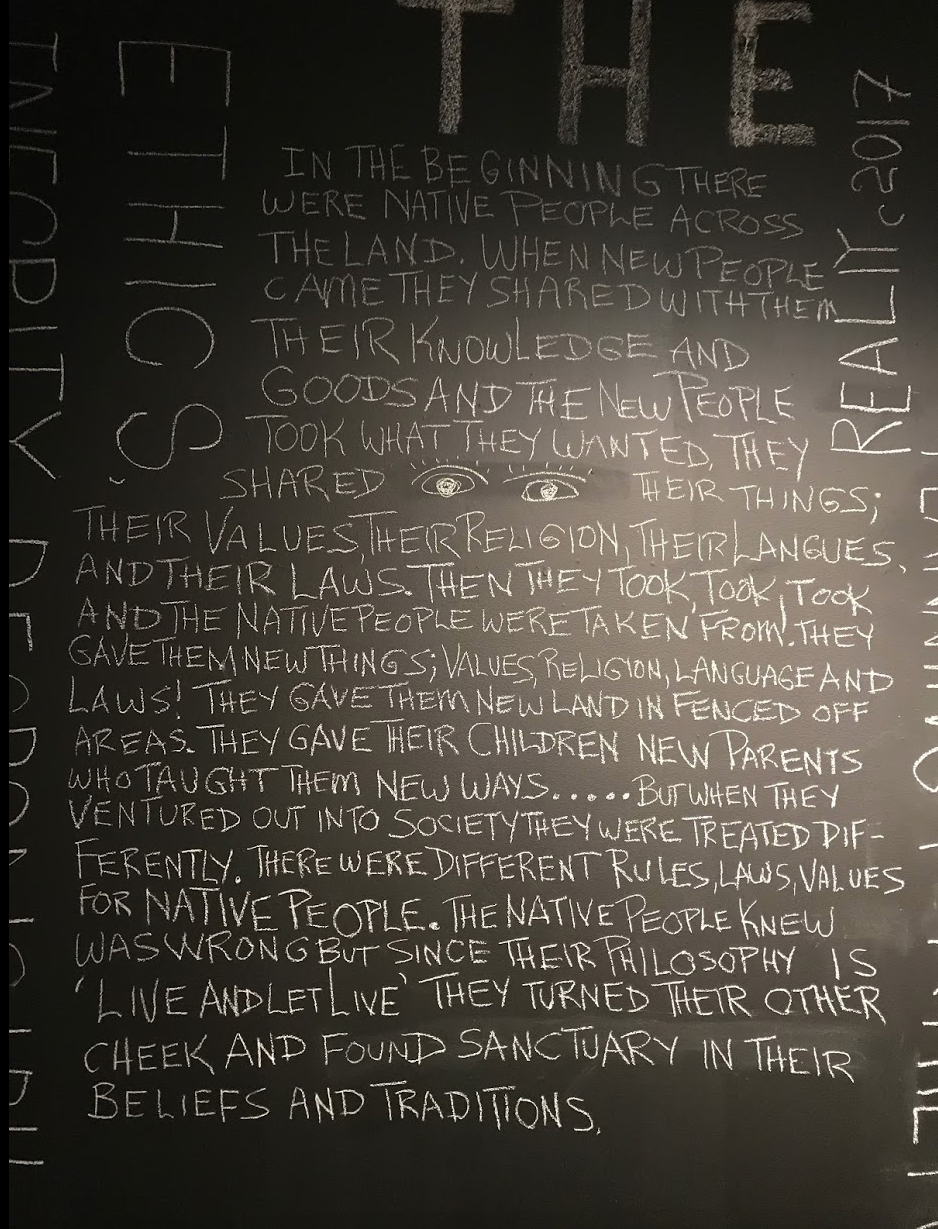 THE
ETHICS
REALITY c 2017
IN THE BEGINNING THERE
WERE NATIVE PEOPLE ACROSS
THE LAND. WHEN NEW PEOPLE
CAME THEY SHARED WITH THEM
THEIR KNOWLEDGE AND
GOODS AND THE NEW PEOPLE
TOOK WHAT THEY WANTED, THEY
SHARED THEIR THINGS;
THEIR VALUES, THEIR RELIGION, THEIR LANGUES,
AND THEIR LAWS. THEN THEY TOOK, TOOK, TOOK
AND THE NATIVE PEOPLE WERE TAKEN FROM. THEY
GAVE THEM NEW THINGS; VALUES, RELIGION, LANGUAGE AND
LAWS! THEY GAVE THEM NEW LAND IN FENCED OFF
AREAS. THEY GAVE THEIR CHILDREN NEW PARENTS
WHO TAUGHT THEM NEW WAYS..... BUT WHEN THEY
VENTURED OUT INTO SOCIETY THEY WERE TREATED DIF-
FERENTLY. THERE WERE DIFFERENT RULES, LAWS, VALUES
FOR NATIVE PEOPLE. THE NATIVE PEOPLE KNEW
WAS WRONG BUT SINCE THEIR PHILOSOPHY IS
'LIVE AND LET LIVE' THEY TURNED THEIR OTHER
CHEEK AND FOUND SANCTUARY IN THEIR
BELIEFS AND TRADITIONS.